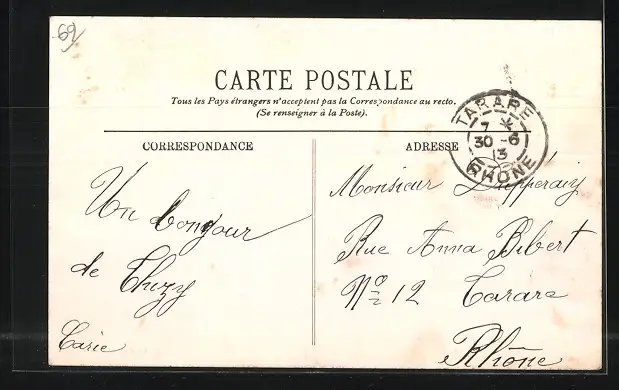 69
CARTE POSTALE
Tous les Pays étrangers n'acceptent pas la Correspondance au recto.
(Se renseigner à la Poste).
TARARE
7 *
30 -6
13
RHÔNE
CORRESPONDANCE
Un bonjour
de Thizy
ADRESSE
Monsieur
Rue Anna Bibert
No 12 Tarare
Rhône